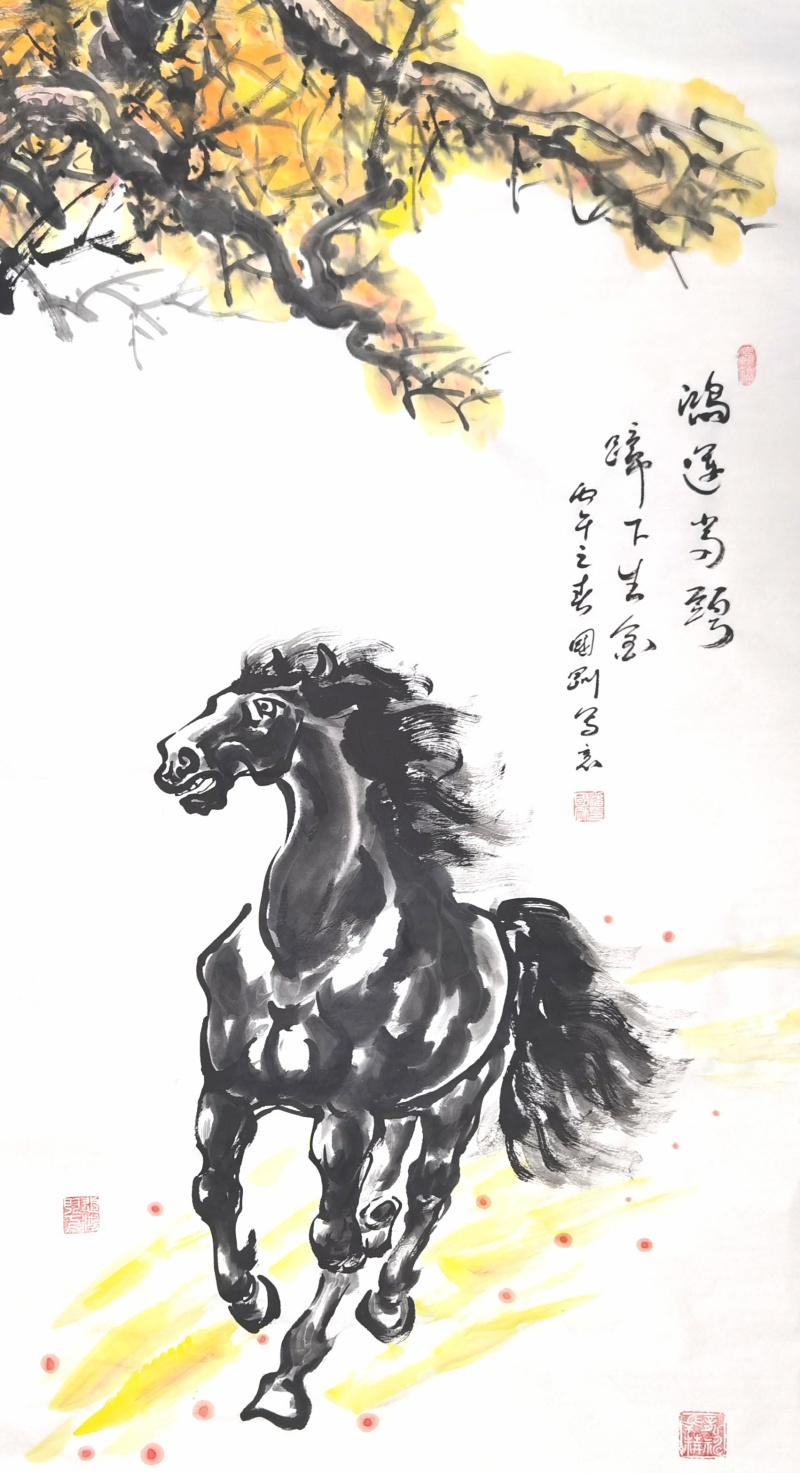 鴻運当頭
蹄下生金
丙午之春國剛写意